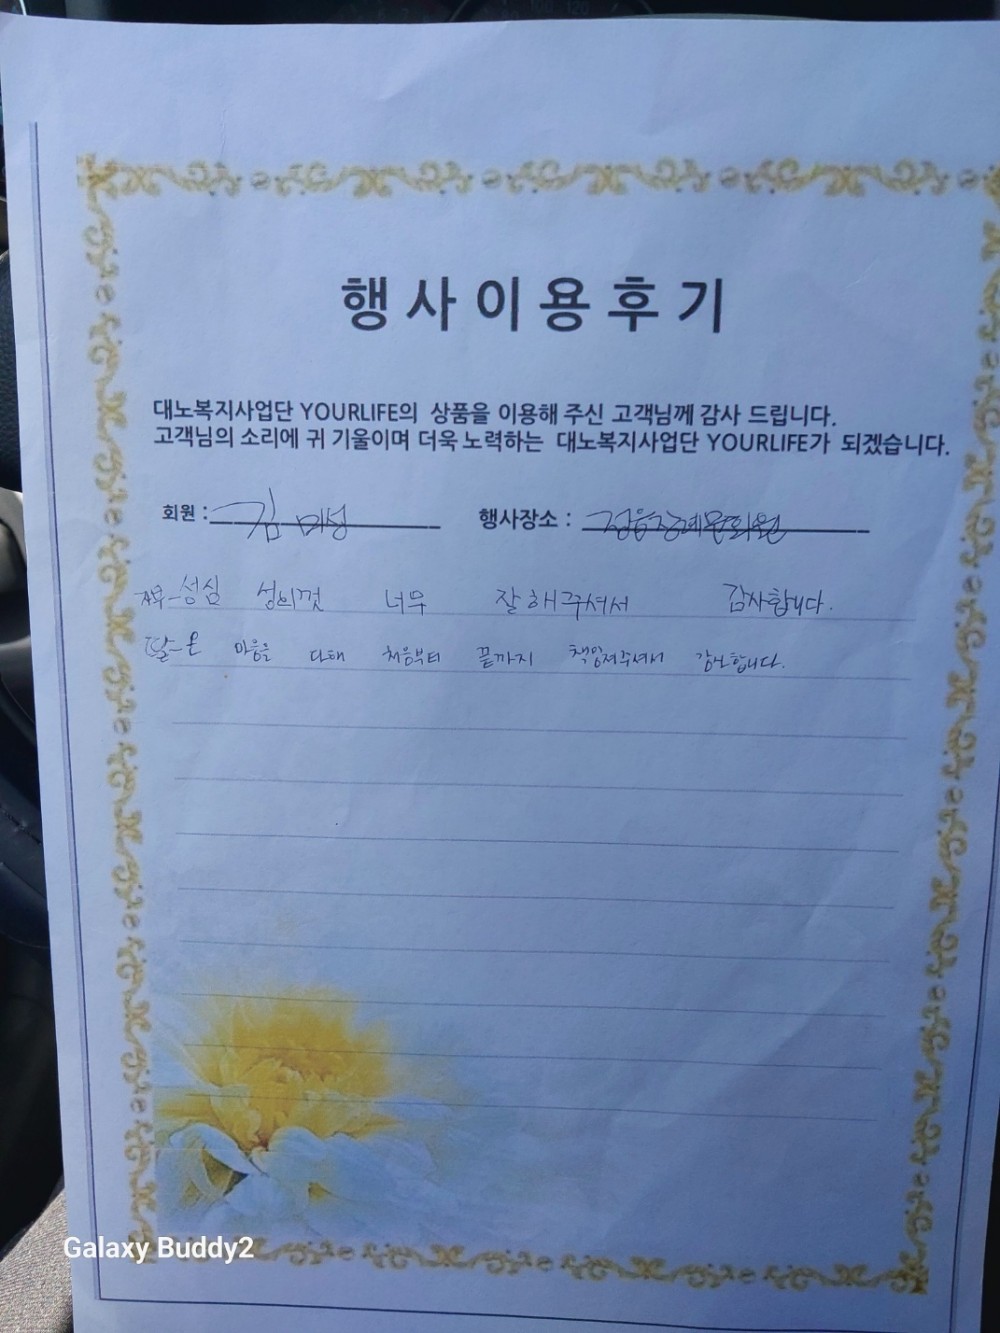 행사이용후기
대노복지사업단 YOURLIFE의 상품을 이용해 주신 고객님께 감사 드립니다.
고객님의 소리에 귀 기울이며 더욱 노력하는 대노복지사업단 YOURLIFE가 되겠습니다.
회원 : 김미성 행사장소 : 정읍장례문화원
성심 성의껏 너무 잘해주셔서 감사합니다.
딸-온 마음을 다해 처음부터 끝까지 책임져주셔서 감사합니다.
Galaxy Buddy2